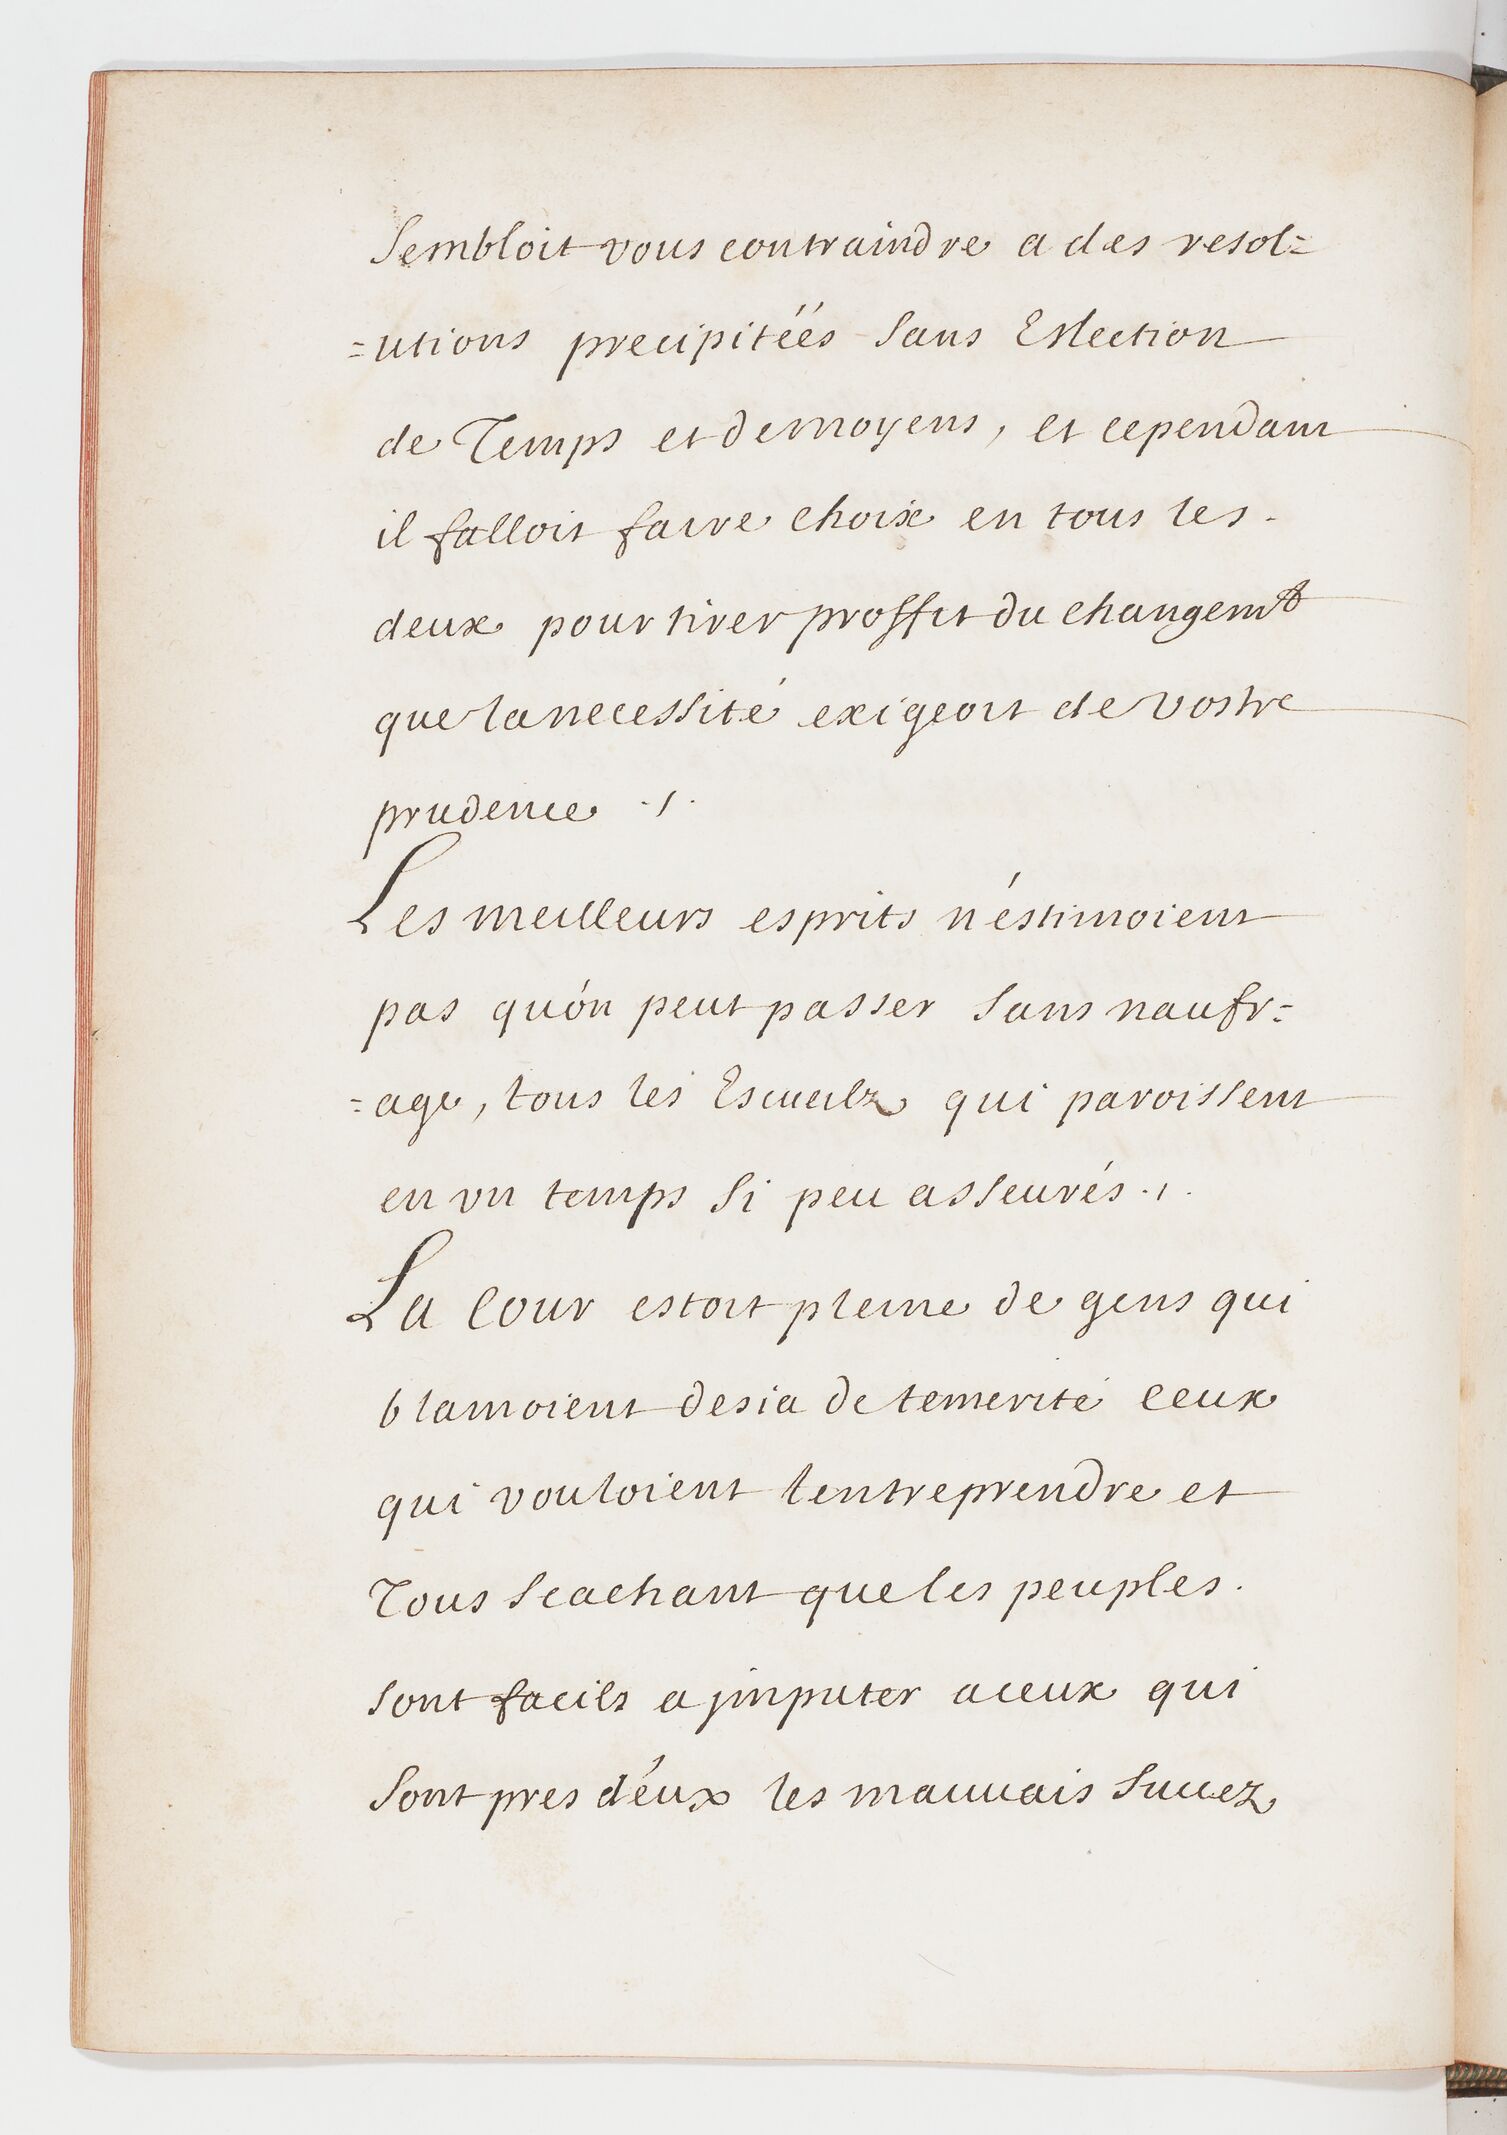 Sembloit vous contraindre a des resol=
=utions precipitéés Sans Eslection
de Temps et de moyens, et cependant
il falloit faire choix en tous les
deux pour tirer proffit du changemt
que la necessité exigeoit de vostre
prudence ./.
Les meilleurs esprits n'éstimoient
pas qu'ón peut passer Sans naufr=
=age, tous les Escueilz qui paroissent
en vn temps Si peu asseurés ./.
La Cour estoit pleine de gens qui
blamoient desia de temerité ceux
qui vouloient lentreprendre et
Tous Scachant que les peuples.
sont facils a jmputer a ceux qui
Sont pres d'éux les mauuais Succez